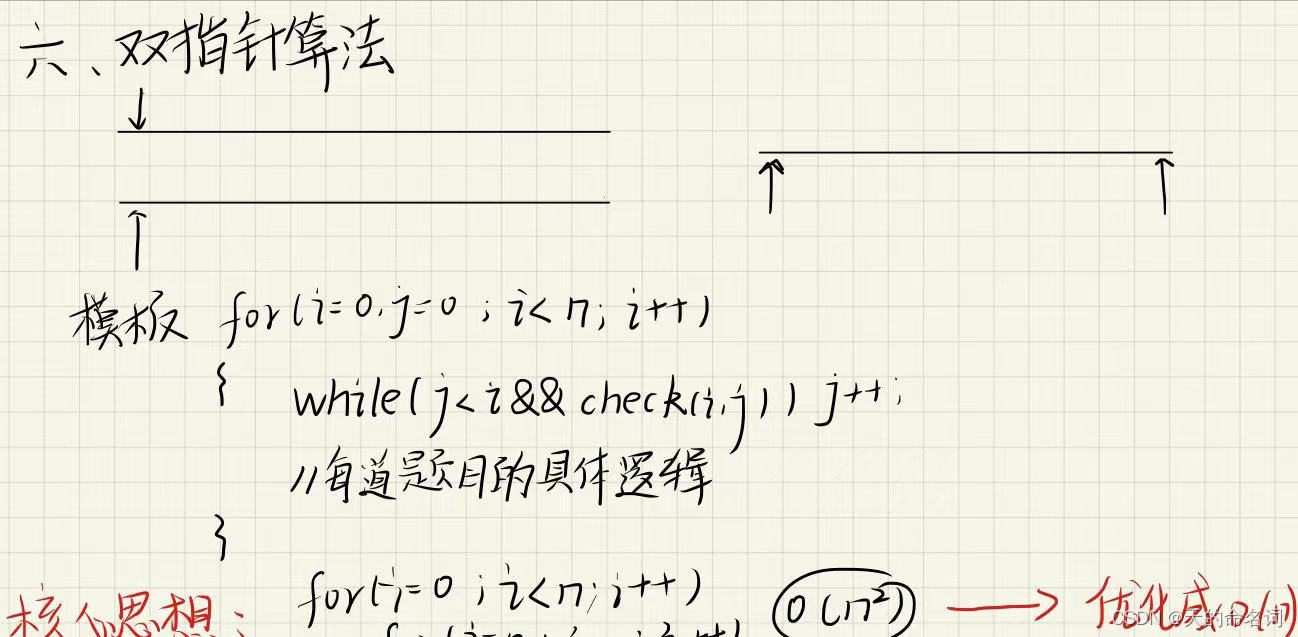 六、双指针算法
模板 for(i=0,j=0;i<n;i++)
{
while(j<i&&check(i,j)) j++;
//每道题目的具体逻辑
}
for(i=0;i<n;i++)
核心思想: O(n²) 优化成O(n)
CSDN @天的命名词